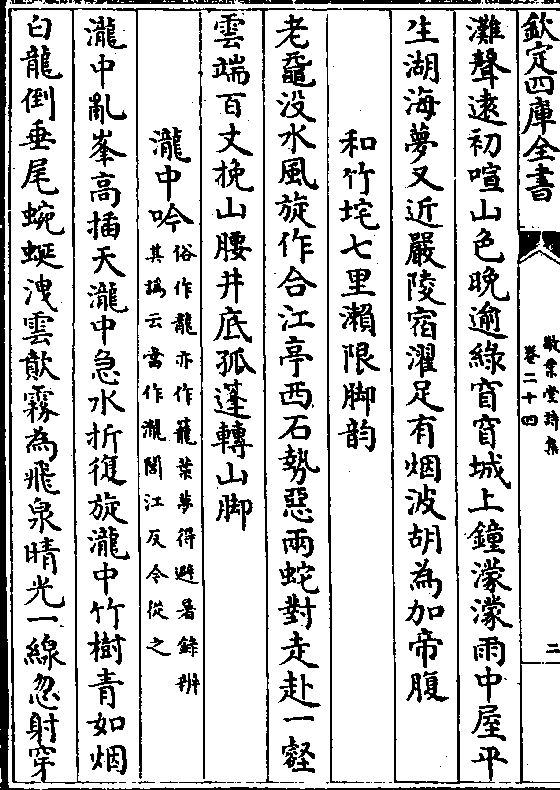 欽定四庫全書
敬業堂詩集
卷二十四
二
灘聲遠初喧山色晚逾綠窅窅城上鐘濛濛雨中屋平
生湖海夢又近嚴陵宿濯足有烟波胡為加帝腹
和竹垞七里瀨限脚韵
老黿没水風旋作合江亭西石勢惡兩蛇對走赴一壑
雲端百丈挽山腰井底孤蓬轉山脚
瀧中吟
俗作龍亦作籠葉夢得避暑錄辨
其譌云當作瀧閭江反今從之
瀧中亂峯高插天瀧中急水折復旋瀧中竹樹青如烟
白龍倒垂尾蜿蜒洩雲歕霧為飛泉晴光一線忽射穿